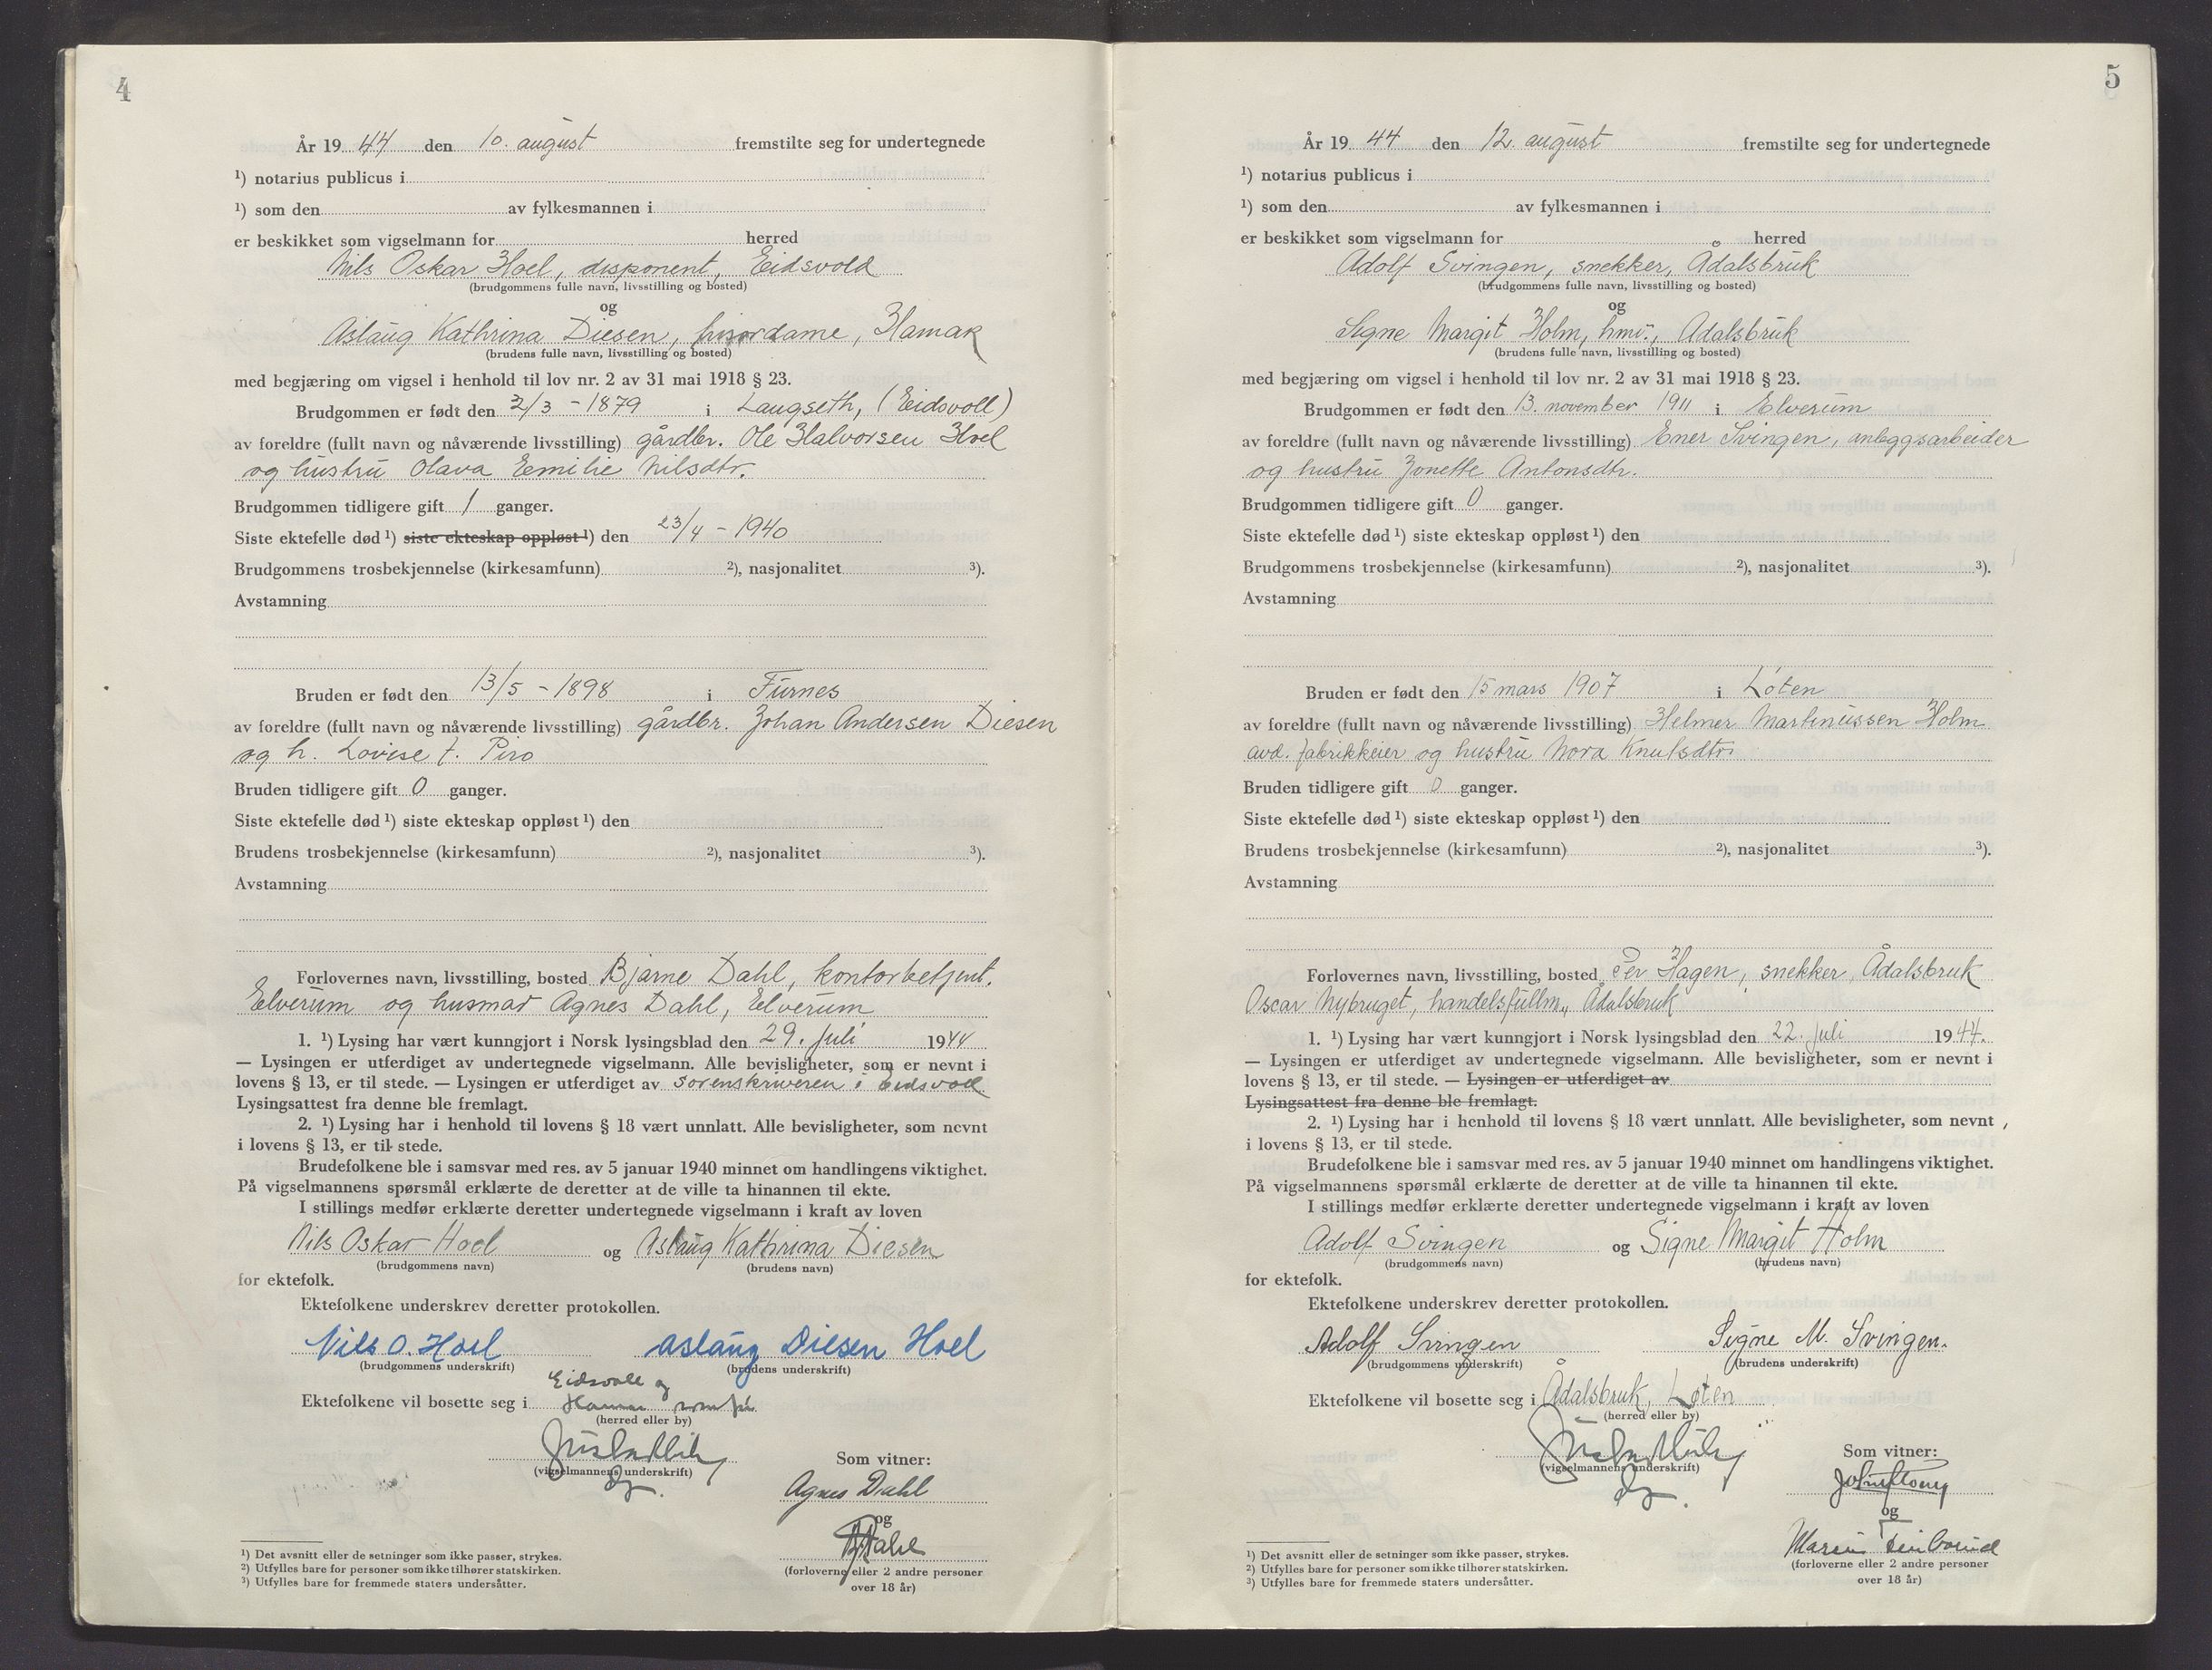 4
År 1944 den 10. august fremstilte seg for undertegnede
¹) notarius publicus i
¹) som den av fylkesmannen i
er beskikket som vigselmann for herred
Nils Oskar Hoel, disponent, Eidsvold
(brudgommens fulle navn, livsstilling og bosted)
og
Aslaug Kathrina Diesen, frisørdame, Hamar
(brudens fulle navn, livsstilling og bosted)
med begjæring om vigsel i henhold til lov nr. 2 av 31 mai 1918 § 23.
Brudgommen er født den 2/3 - 1879 i Langseth, (Eidsvoll)
av foreldre (fullt navn og nåværende livsstilling) gårdbr. Ole Halvorsen Hoel
og hustru Olava Emilie Nilsdtr.
Brudgommen tidligere gift 1 ganger.
Siste ektefelle død ¹) siste ekteskap oppløst ¹) den 23/4 - 1940
Brudgommens trosbekjennelse (kirkesamfunn) ²), nasjonalitet ³).
Avstamning
Bruden er født den 13/5 - 1898 i Furnes
av foreldre (fullt navn og nåværende livsstilling) gårdbr. Johan Andersen Diesen
og h. Lovise f. Piro
Bruden tidligere gift 0 ganger.
Siste ektefelle død ¹) siste ekteskap oppløst ¹) den
Brudens trosbekjennelse (kirkesamfunn) ²), nasjonalitet ³).
Avstamning
Forlovernes navn, livsstilling, bosted Bjarne Dahl, kontorbetjent.
Elverum og husmor Agnes Dahl, Elverum
1. ¹) Lysing har vært kunngjort i Norsk lysingsblad den 29. juli 1944
— Lysingen er utferdiget av undertegnede vigselmann. Alle bevisligheter, som er nevnt i
lovens § 13, er til stede. — Lysingen er utferdiget av sorenskriveren i Eidsvoll
Lysingsattest fra denne ble fremlagt.
2. ¹) Lysing har i henhold til lovens § 18 vært unnlatt. Alle bevisligheter, som nevnt
i lovens § 13, er til stede.
Brudefolkene ble i samsvar med res. av 5 januar 1940 minnet om handlingens viktighet.
På vigselmannens spørsmål erklærte de deretter at de ville ta hinannen til ekte.
I stillings medfør erklærte deretter undertegnede vigselmann i kraft av loven
Nils Oskar Hoel og Aslaug Kathrina Diesen
(brudgommens navn) (brudens navn)
for ektefolk.
Ektefolkene underskrev deretter protokollen.
Nils O. Hoel Aslaug Diesen Hoel
(brudgommens underskrift) (brudens underskrift)
Eidsvoll og
Ektefolkene vil bosette seg i Hamar
(herred eller by)
(vigselmannens underskrift) Som vitner:
Agnes Dahl
og
Dahl
(forloverne eller 2 andre personer
over 18 år)
¹) Det avsnitt eller de setninger som ikke passer, strykes.
²) Utfylles bare for personer som ikke tilhører statskirken.
³) Utfylles bare for fremmede staters undersåtter.
5
År 1944 den 12. august fremstilte seg for undertegnede
¹) notarius publicus i
¹) som den av fylkesmannen i
er beskikket som vigselmann for herred
Adolf Svingen, snekker, Ådalsbruk
(brudgommens fulle navn, livsstilling og bosted)
og
Signe Margit Holm, hmv., Adalsbruk
(brudens fulle navn, livsstilling og bosted)
med begjæring om vigsel i henhold til lov nr. 2 av 31 mai 1918 § 23.
Brudgommen er født den 13. november 1911 i Elverum
av foreldre (fullt navn og nåværende livsstilling) Ener Svingen, anleggsarbeider
og hustru Jonette Antonsdtr.
Brudgommen tidligere gift 0 ganger.
Siste ektefelle død ¹) siste ekteskap oppløst ¹) den
Brudgommens trosbekjennelse (kirkesamfunn) ²), nasjonalitet ³).
Avstamning
Bruden er født den 15 mars 1907 i Løten
av foreldre (fullt navn og nåværende livsstilling) Helmer Martinussen Holm
avd. fabrikkeier og hustru Nora Knutsdtr.
Bruden tidligere gift 0 ganger.
Siste ektefelle død ¹) siste ekteskap oppløst ¹) den
Brudens trosbekjennelse (kirkesamfunn) ²), nasjonalitet ³).
Avstamning
Forlovernes navn, livsstilling, bosted Per Hagen, snekker, Ådalsbruk
Oscar Nybruget, handelsfullm., Ådalsbruk
1. ¹) Lysing har vært kunngjort i Norsk lysingsblad den 22. juli 1944.
— Lysingen er utferdiget av undertegnede vigselmann. Alle bevisligheter, som er nevnt i
lovens § 13, er til stede. — Lysingen er utferdiget av
Lysingsattest fra denne ble fremlagt.
2. ¹) Lysing har i henhold til lovens § 18 vært unnlatt. Alle bevisligheter, som nevnt
i lovens § 13, er til stede.
Brudefolkene ble i samsvar med res. av 5 januar 1940 minnet om handlingens viktighet.
På vigselmannens spørsmål erklærte de deretter at de ville ta hinannen til ekte.
I stillings medfør erklærte deretter undertegnede vigselmann i kraft av loven
Adolf Svingen og Signe Margit Holm
(brudgommens navn) (brudens navn)
for ektefolk.
Ektefolkene underskrev deretter protokollen.
Adolf Svingen Signe M. Svingen.
(brudgommens underskrift) (brudens underskrift)
Ektefolkene vil bosette seg i Ådalsbruk, Løten
(herred eller by)
(vigselmannens underskrift) Som vitner:
og
(forloverne eller 2 andre personer
over 18 år)
¹) Det avsnitt eller de setninger som ikke passer, strykes.
²) Utfylles bare for personer som ikke tilhører statskirken.
³) Utfylles bare for fremmede staters undersåtter.